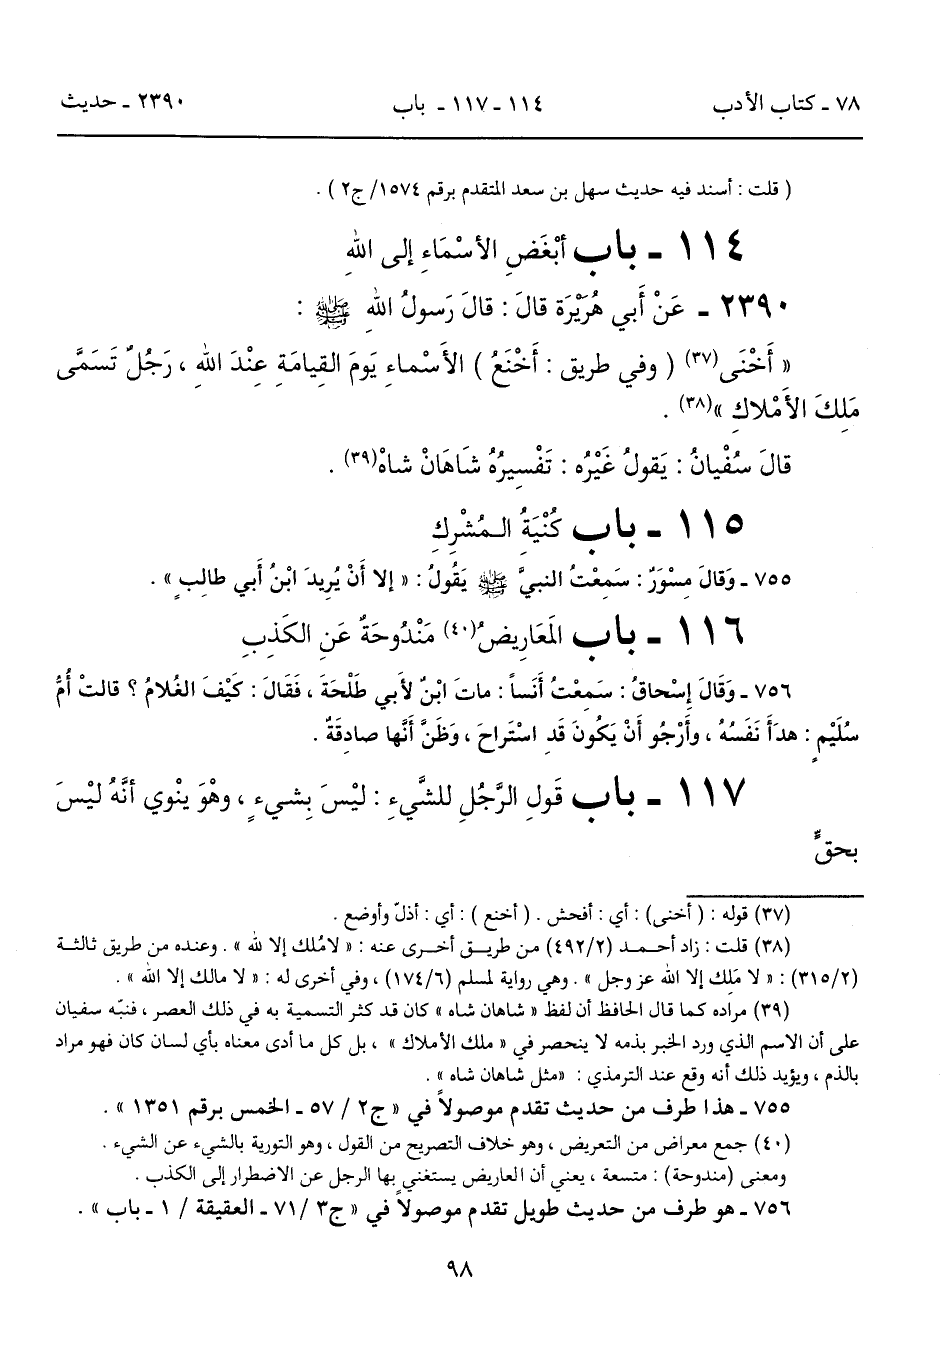 ٧٨ ـ كتاب الأدب ١١٤ ـ ١١٧ ـ باب ٢٣٩٠ ـ حديث
( قلت : أسند فيه حديث سهل بن سعد المتقدم برقم ١٥٧٤/ ج٢ ) .
١١٤ ـ باب أبْغَضِ الأسْمَاءِ إلى اللهِ
٢٣٩٠ ـ عَنْ أَبي هُرَيْرَة قالَ : قالَ رَسولُ اللهِ ﷺ :
« أَخْنَى(٣٧) ( وفي طريق : أَخْنَعُ ) الأَسْماءِ يَومَ القِيامَةِ عِنْدَ اللهِ ، رَجُلٌ تَسَمَّى
مَلِكَ الأَمْلاكِ »(٣٨) .
قالَ سُفْيانُ : يَقولُ غَيْرُه : تَفْسيرُهُ شاهَانْ شاهْ(٣٩) .
١١٥ ـ باب كُنْيَةُ المُشْرِكِ
٧٥٥ ـ وَقالَ مِسْوَرٌ : سَمِعْتُ النبيَّ ﷺ يَقُولُ : « إلا أَنْ يُرِيدَ ابْنُ أَبي طالِبٍ » .
١١٦ ـ باب المَعَاريضُ(٤٠) مَنْدُوحَةٌ عَنِ الكَذِبِ
٧٥٦ ـ وَقَالَ إِسْحاقُ : سَمِعْتُ أَنَساً : ماتَ ابْنٌ لأبي طَلْحَةَ ، فَقَالَ : كَيْفَ الغُلامُ ؟ قالتْ أُمُّ
سُلَيْمٍ : هدَأَ نَفَسُهُ ، وأَرْجُو أَنْ يَكُونَ قَدِ اسْتَراحَ ، وَظَنَّ أَنَّها صادِقَةٌ .
١١٧ ـ باب قَولِ الرَّجُلِ للشَّيءِ : لَيْسَ بِشَيءٍ ، وهْوَ يَنْوي أنَّهُ لَيْسَ
بحقٍّ
(٣٧) قوله : ( أخنى) : أي : أفحش . ( أخنع ) : أي : أذلّ وأوضع .
(٣٨) قلت : زاد أحمد (٤٩٢/٢) من طريق أخرى عنه : « لامُلك إلا لله » . وعنده من طريق ثالثة
(٣١٥/٢) : « لا مَلِك إلا الله عز وجل » . وهي رواية لمسلم (١٧٤/٦) ، وفي أخرى له : « لا مالك إلا الله » .
(٣٩) مراده كما قال الحافظ أن لفظ « شاهان شاه » كان قد كثر التسمية به في ذلك العصر ، فنبّه سفيان
على أن الاسم الذي ورد الخبر بذمه لا ينحصر في « ملك الأملاك » ، بل كل ما أدى معناه بأي لسان كان فهو مراد
بالذم ، ويؤيد ذلك أنه وقع عند الترمذي : «مثل شاهان شاه » .
٧٥٥ ـ هذا طرف من حديث تقدم موصولاً في « ج٢ / ٥٧ ـ الخمس برقم ١٣٥١ » .
(٤٠) جمع معراض من التعريض ، وهو خلاف التصريح من القول ، وهو التورية بالشيء عن الشيء .
ومعنى (مندوحة) : متسعة ، يعني أن العاريض يستغني بها الرجل عن الاضطرار إلى الكذب .
٧٥٦ ـ هو طرف من حديث طويل تقدم موصولاً في « ج٣ /٧١ ـ العقيقة / ١ ـ باب » .
٩٨